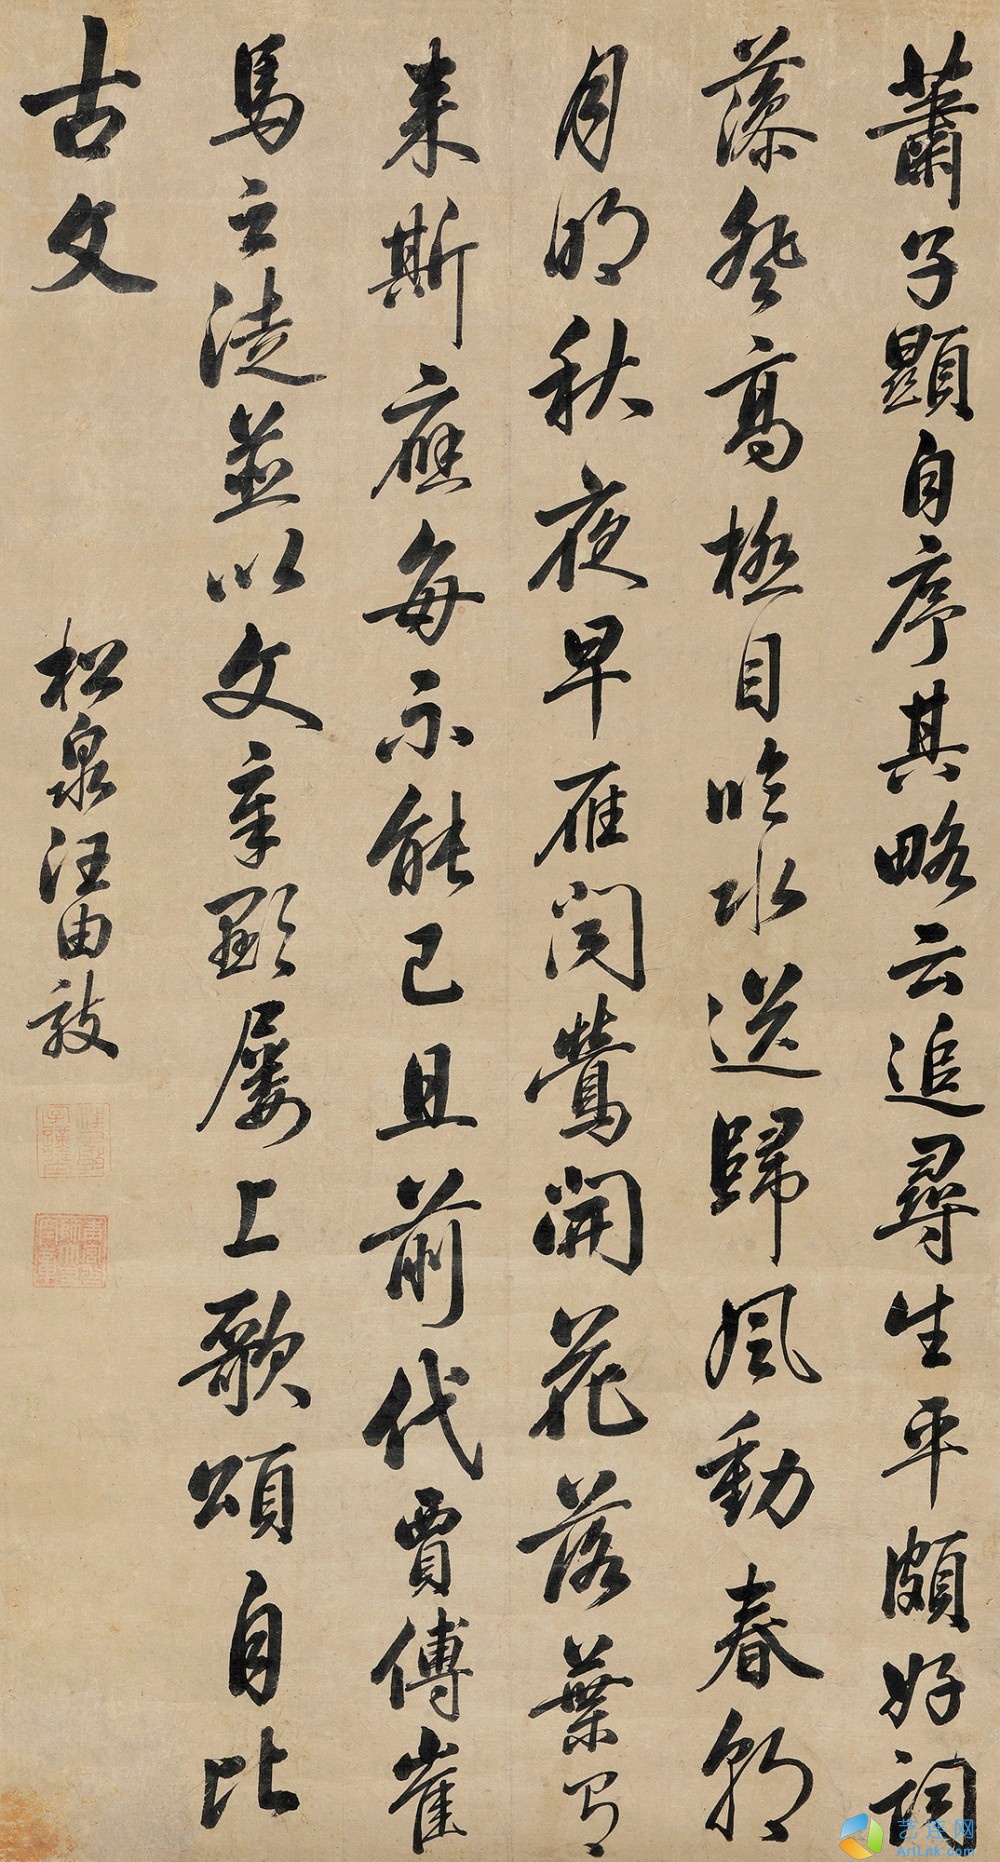 蕭子顯自序其略云追尋生平頗好詞
藻登高極目臨水送歸風動春朝
月明秋夜早雁聞鶯開花落葉有
來斯應每不能已且前代賈傅崔
馬之徒並以文章顯屢上歌頌自比
古文
松泉汪由敦
艺连网
ArtLnk.com